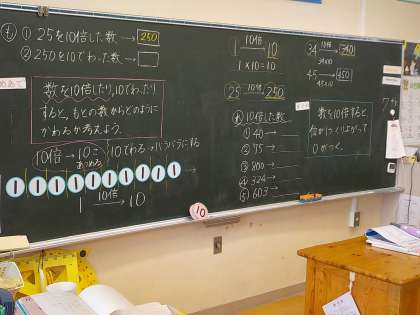 も ① 25を10倍した数→ 250
② 250を10でわった数→
めあて
数を10倍したり,10でわったり
すると、もとの数からどのように
かわるか考えよう。
10倍→10こ
あつめる
10でわる→バラバラにする
1 1 1 1 1 1 1 1 1 1
1 10倍→ 10
1 10倍→ 10
1×10=10
25 10倍→ 250
も 10倍した数
① 40→
② 75→
③ 800→
④ 324→
⑤ 603→
10
34 10倍→ 340
34×10
45→ 450
45×10
まとめ
数を10倍すると、
0がつく。